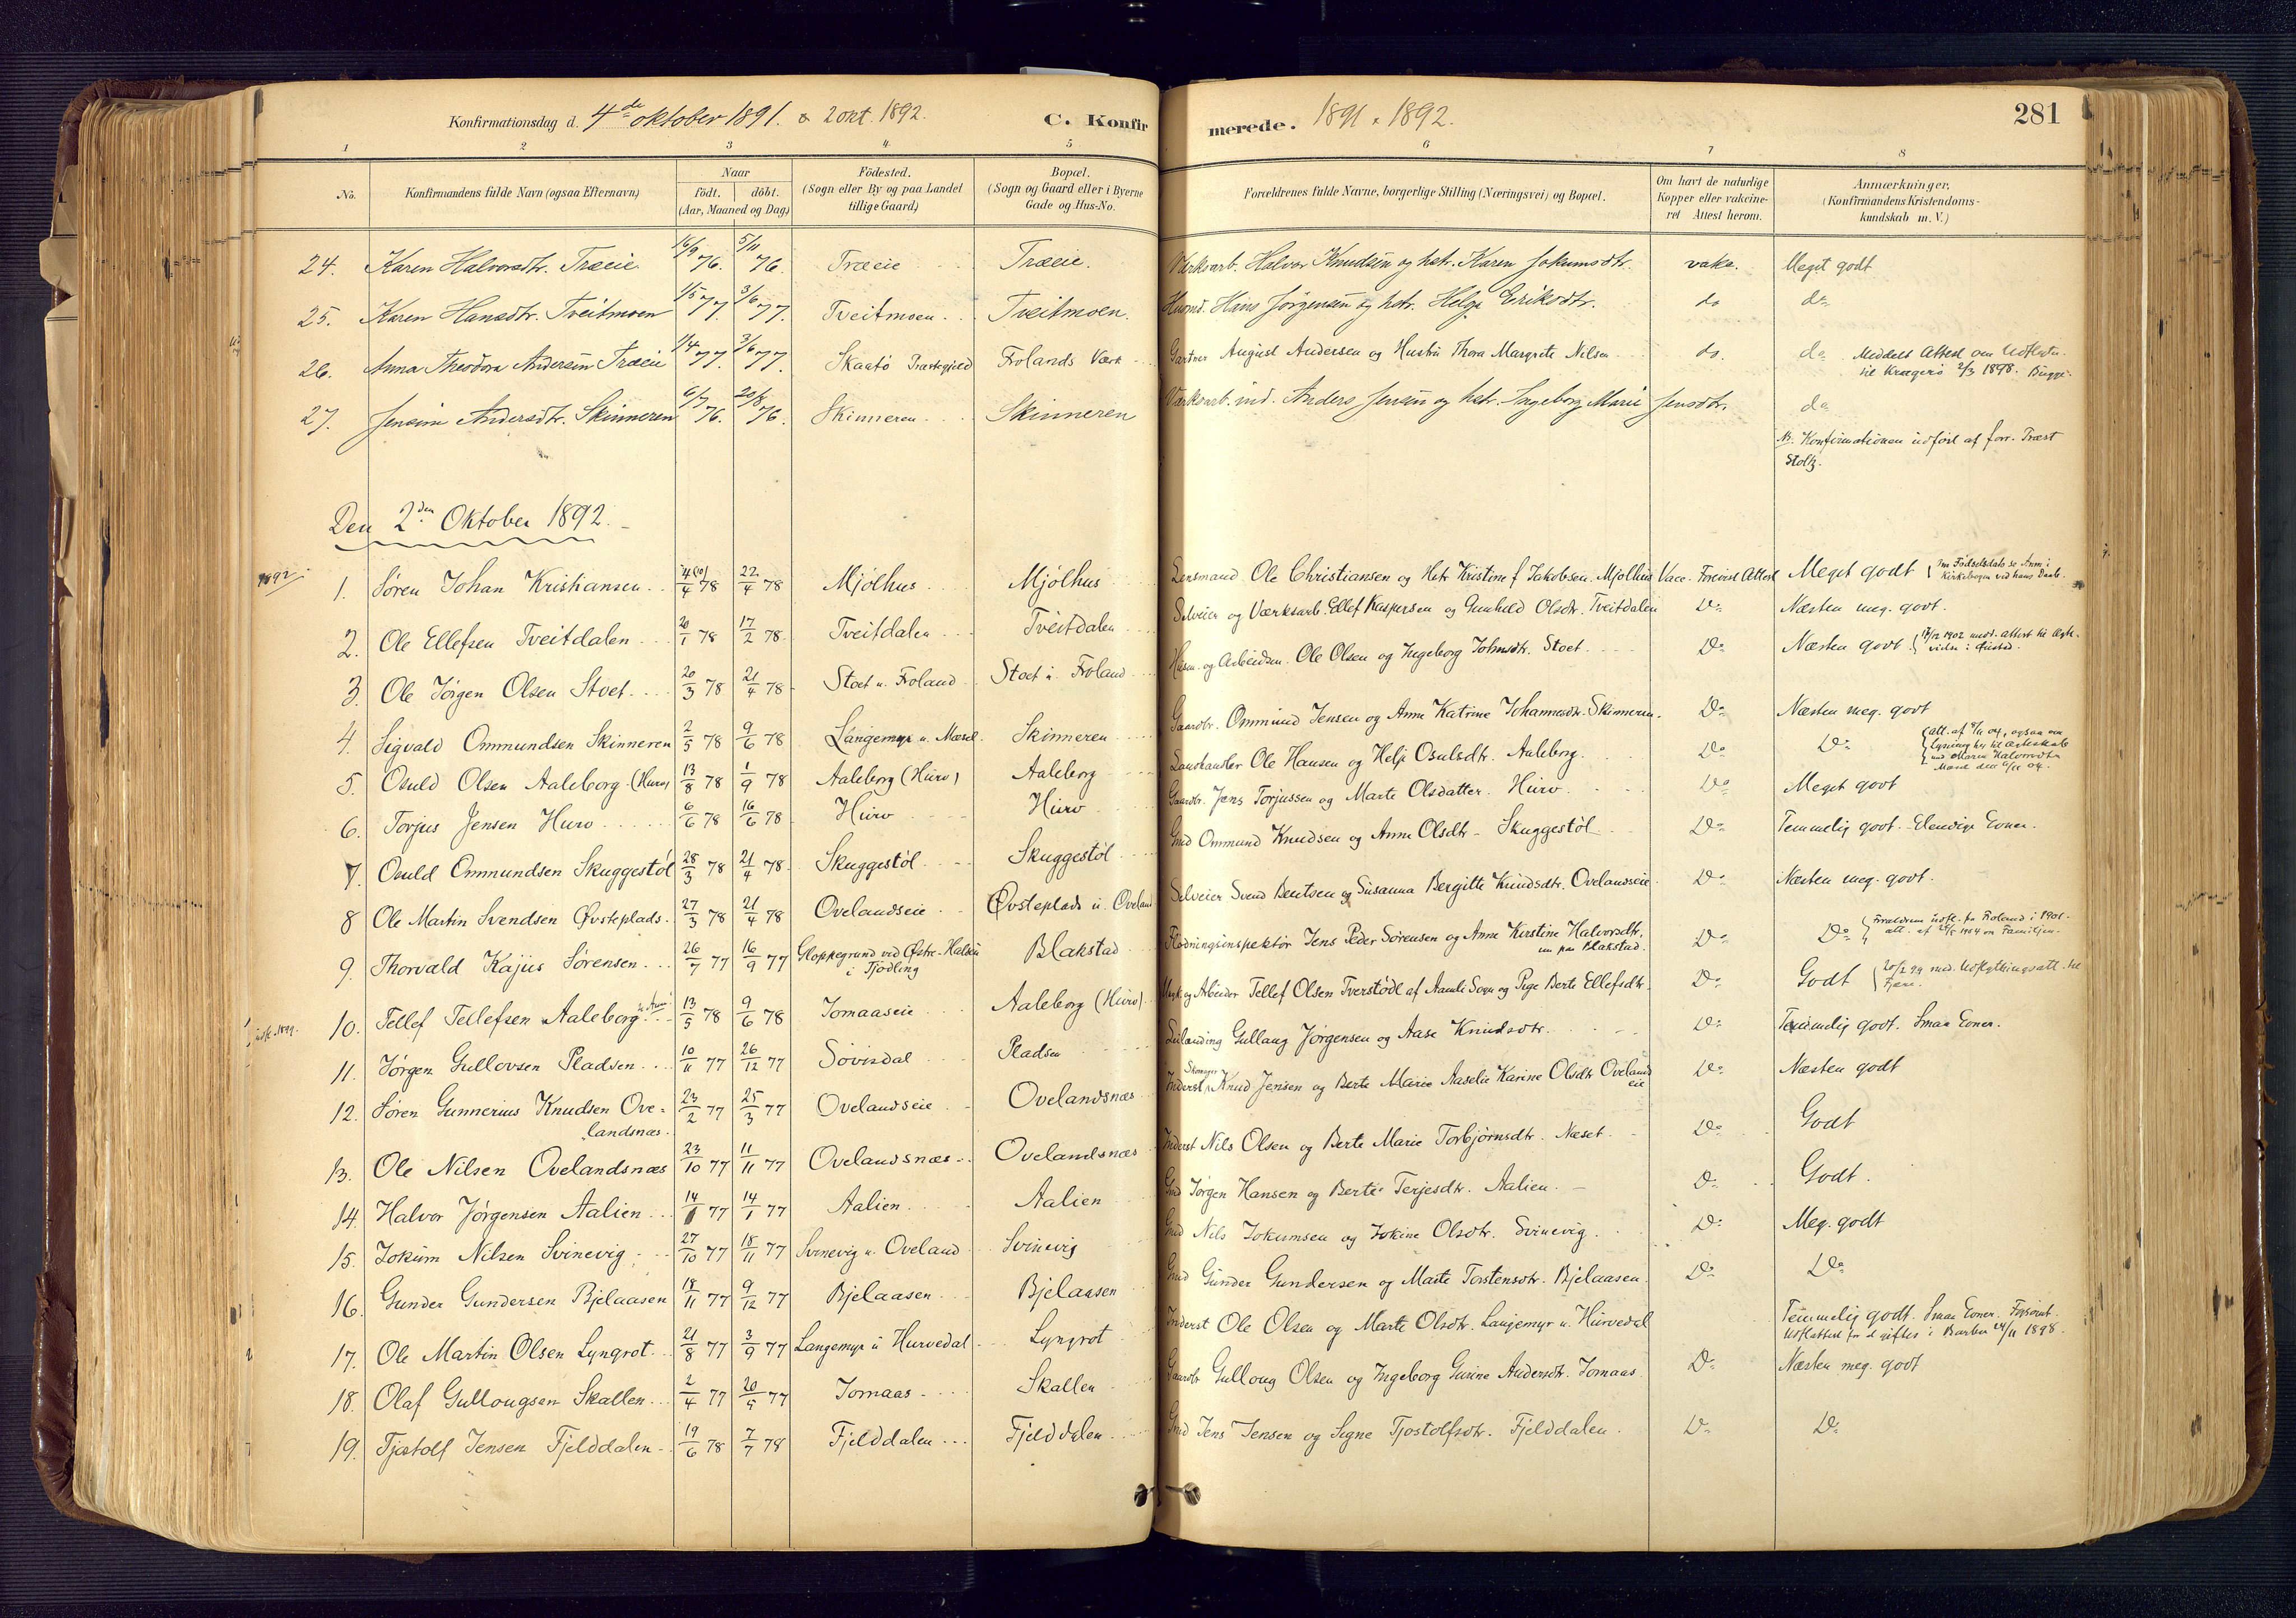 Konfirmationsdag d. 4de oktober 1891. & 2 okt. 1892. C. Konfirmerede. 1891 & 1892. 281
1 2 3 4 5 6 7 8
No. Konfirmandens fulde Navn (ogsaa Efternavn) Naar födt. döbt. (Aar, Maaned og Dag) Födested. (Sogn eller By og paa Landet tillige Gaard) Bopæl. (Sogn og Gaard eller i Byerne Gade og Hus-No. Forældrenes fulde Navne, borgerlige Stilling (Næringsvei) og Bopæl. Om havt de naturlige Kopper eller vakcineret Attest herom. Anmærkninger. (Konfirmandens Kristendomskundskab m. V.)
24. Karen Halvorsdtr. Træeie 16/9 76. 5/11 76. Træeie Træeie. Værksarb. Halvor Knudsen og hstr. Karen Jokumsdtr. vake. Meget godt
25. Karen Hansdtr. Tveitmoen 1/5 77. 3/6 77. Tveitmoen Tveitmoen. Husmd. Hans Jörgensen og hstr. Helge Eriksdtr. do do
26. Anna Theodora Andersen Træeie 1/4 77. 3/6 77. Skaatö Præstegjeld Frolands Værk Gartner August Andersen og Hustru Thora Margrete Nilsen do. do Meddelt Attest om Udflytn. til Kragerö 2/3 1898. Bugge.
27. Jensine Andersdtr. Skinneren 6/7 76. 20/8 76. Skinneren Skinneren Værksarb. ind. Anders Jensen og hstr. Ingeborg Marie Jensdtr. do
Nb. Konfirmationen udført af forr. Præst
Stoltz.
Den 2den Oktober 1892.
1892
1. Søren Johan Kristiansen 4(10)/4 78 22/4 78 Mjólhus Mjólhus Lensmand Ole Christiansen og Hstr Kristine f Jakobsen. Mjólhus Vacc. Forevist Attest Meget godt {Om Fødselsdato se Anm i Kirkebogen ved hans Daab.
2. Ole Ellefsen Tveitdalen 20/1 78 17/2 78. Tveitdalen Tveitdalen Selveier og Værksarb. Ellef Kaspersen og Gunhild Olsdtr. Tveitdalen Do Næsten meg. godt.
3. Ole Jörgen Olsen Stoet 20/3 78 21/4 78 Stoet u. Froland Stoet u. Froland Husm. og Arbeidsm. Ole Olsen og Ingeborg Johnsdtr. Stoet Do Næsten godt
4. Sigvald Ommundsen Skinneren 2/5 78 9/6 78 Langemyr u. Mæsel Skinneren Gaardbr. Ommund Jensen og Anne Katrine Johannesdtr. Skinneren Do Næsten meg. godt
5. Osuld Olsen Aaleborg (Hurv) 13/8 78 1/9 78 Aaleborg (Hurv) Aaleborg Landhandler Ole Hansen og Helje Osulsdtr. Aaleborg. Do Do
6. Torjus Jensen Hurv 6/6 78 16/6 78 Hurv Hurv Gaardbr. Jens Torjussen og Marte Olsdatter. Hurv Do Meget godt
7. Osuld Ommundsen Skuggestöl 28/3 78 21/4 78 Skuggestöl Skuggestöl Gmd Ommund Knudsen og Anne Olsdtr - Skuggestöl Do Temmelig godt. Elendige Evner.
8 Ole Martin Svendsen Øvsteplads 27/3 78 21/4 78 Ovelandseie Øvsteplads u. Oveland Selveier Svend Bentsen og Susanna Bergitte Knudsdtr. Ovelandseie Do Næsten meg. godt.
9. Thorvald Kajus Sörensen 26/7 77 16/9 77 Gloppegrund ved Østre-Halsen i Tjødling Blakstad Flødningsinspektör Jens Peder Sörensen og Anne Kirstine Halvorsdtr. nu paa Blakstad. Do Do
10. Tellef Tellefsen Aaleborg 13/5 78 9/6 78 Jomaaseie Aaleborg (Hurv) Ungk. og Arbeider Tellef Olsen Tverstødl af Aamli Sogn og Pige Berte Ellefsdtr. Do Godt {20/2 99 med. Udflytningsatt. til
11. Jörgen Gullovsen Pladsen 10/11 77 26/12 77 Sövisdal Pladsen Leilænding Gullaug Jörgensen og Aase Knudsdtr. Do Temmelig godt. Smaa Evner.
12. Sören Gunnerius Knudsen Ovelandsnæs 23/2 77 25/3 77 Ovelandseie Ovelandsnæs Inderst, Skomager Knud Jensen og Berte Marie Aaselie Karine Olsdtr Ovelandeie Do Næsten godt
13. Ole Nilsen Ovelandsnæs 23/10 77 11/11 77 Ovelandsnæs Ovelandsnæs Inderst Nils Olsen og Berte Marie Torbjörnsdtr. Næset. Do Godt
14. Halvor Jörgensen Aalien 14/1 77 14/1 77 Aalien Aalien Gmd Jörgen Hansen og Berte Terjesdtr. Aalien. Do Godt.
15. Jokum Nilsen Svinevig 27/10 77 18/11 77 Svinevig u. Oveland Svinevig Gmd Nils Jokumsen og Jokine Olsdtr. Svinevig. Do Meg. godt
16. Gunder Gundersen Bjelaasen 18/11 77 9/12 77 Bjelaasen Bjelaasen Gmd Gunder Gundersen og Marte Torstensdtr. Bjelaasen. Do Do
17. Ole Martin Olsen Lyngrot 21/8 77 3/9 77 Langemyr u Hurvedal Lyngrot Inderst Ole Olsen og Marte Olsdtr. Langemyr u. Hurvedal Temmelig godt. Smaa Evner. Forsømt. Udfl.attest for at giftes i Barbu 24/11 1898.
18. Olaf Gullougsen Skallen 2/4 77 20/5 77 Jomaas Skallen Gaardbr Gulloug Olsen og Ingeborg Gurine Andersdtr. Jomaas Do Næsten meg. godt
19. Tjostolf Jensen Fjelddalen 19/6 78 7/7 78 Fjelddalen Fjelddalen Gmd Jens Jensen og Signe Tjostolfsdtr. Fjelddalen. Do Do